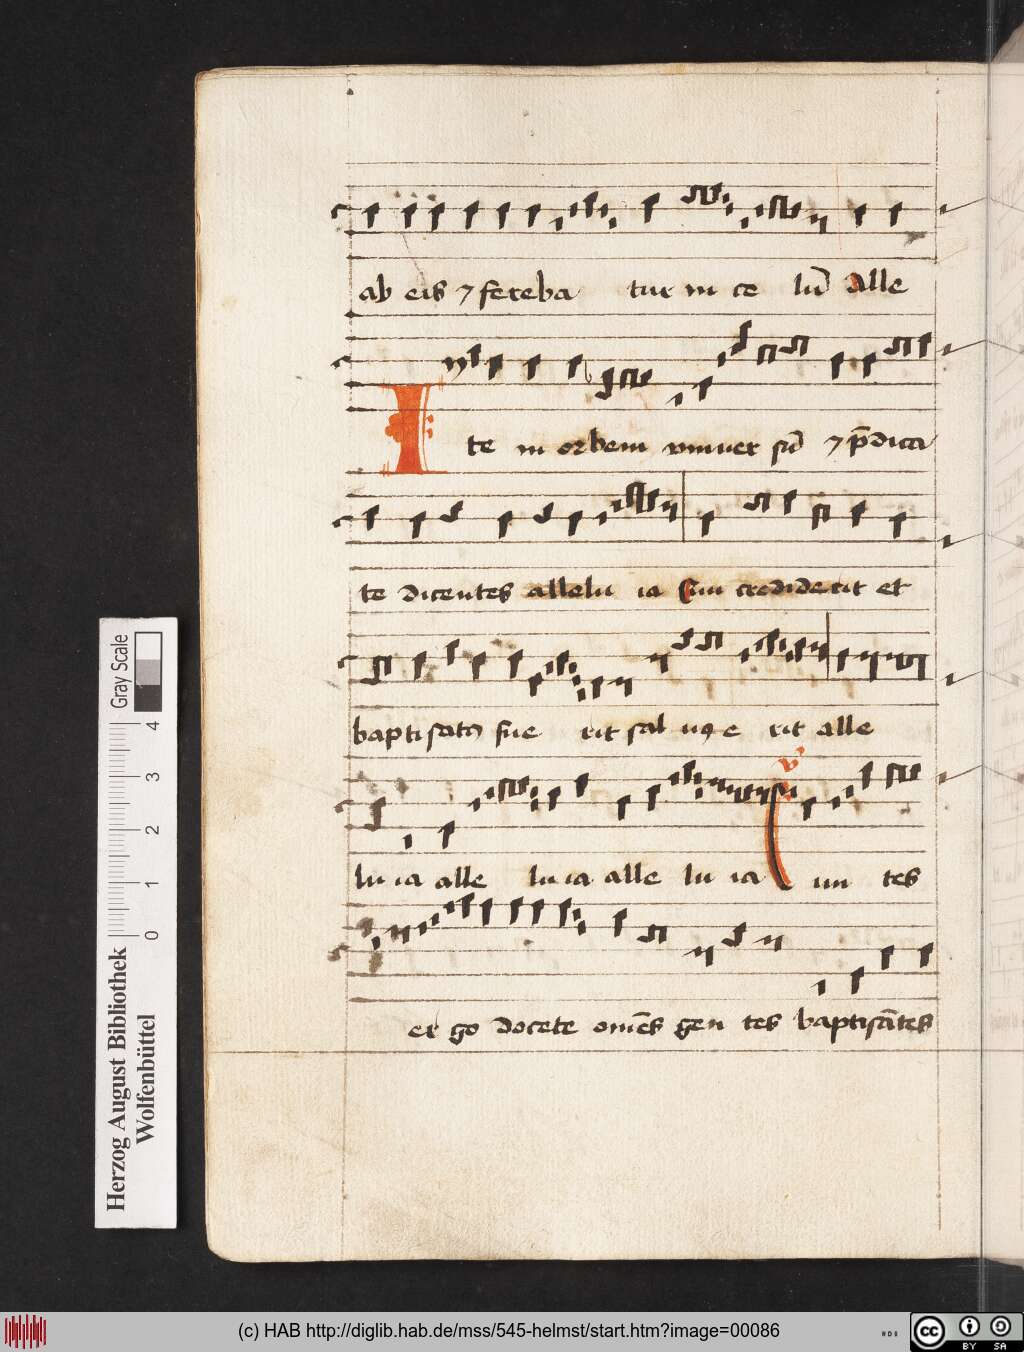 ab eis ⁊ fereba tur in ce lū Alle
Ite in orbem vniuer sū ⁊ p̄dica
te dicentes allelu ia Qui crediderit et
baptisatꝰ fue rit sal uꝰ e rit alle
lu ia alle lu ia alle lu ia v̓ Eun tes
er go docete om̄es gen tes baptisātes
Gray Scale
0 1 2 3 4
Herzog August Bibliothek
Wolfenbüttel
(c) HAB http://diglib.hab.de/mss/545-helmst/start.htm?image=00086
cc BY SA